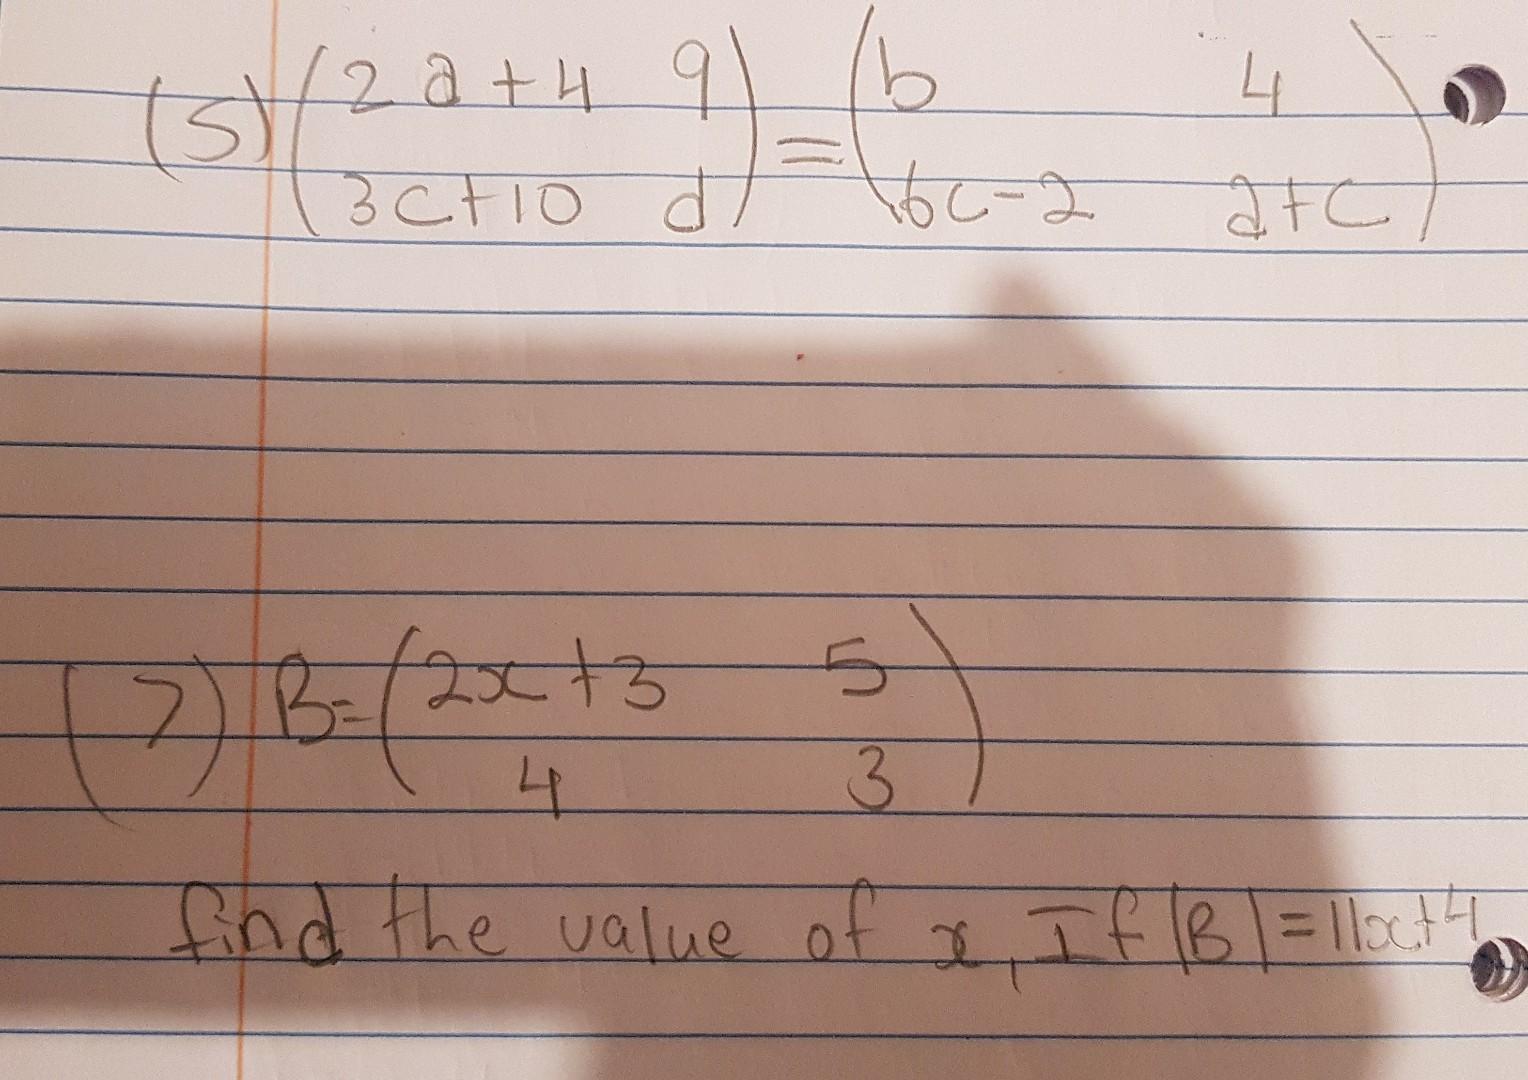 (5) (2a+4 9) = (b 4)
(3c+10 d) (6c-2 a+c)
(7) B= (2x+3 5)
(4 3)
find the value of x, If |B|=11x+4